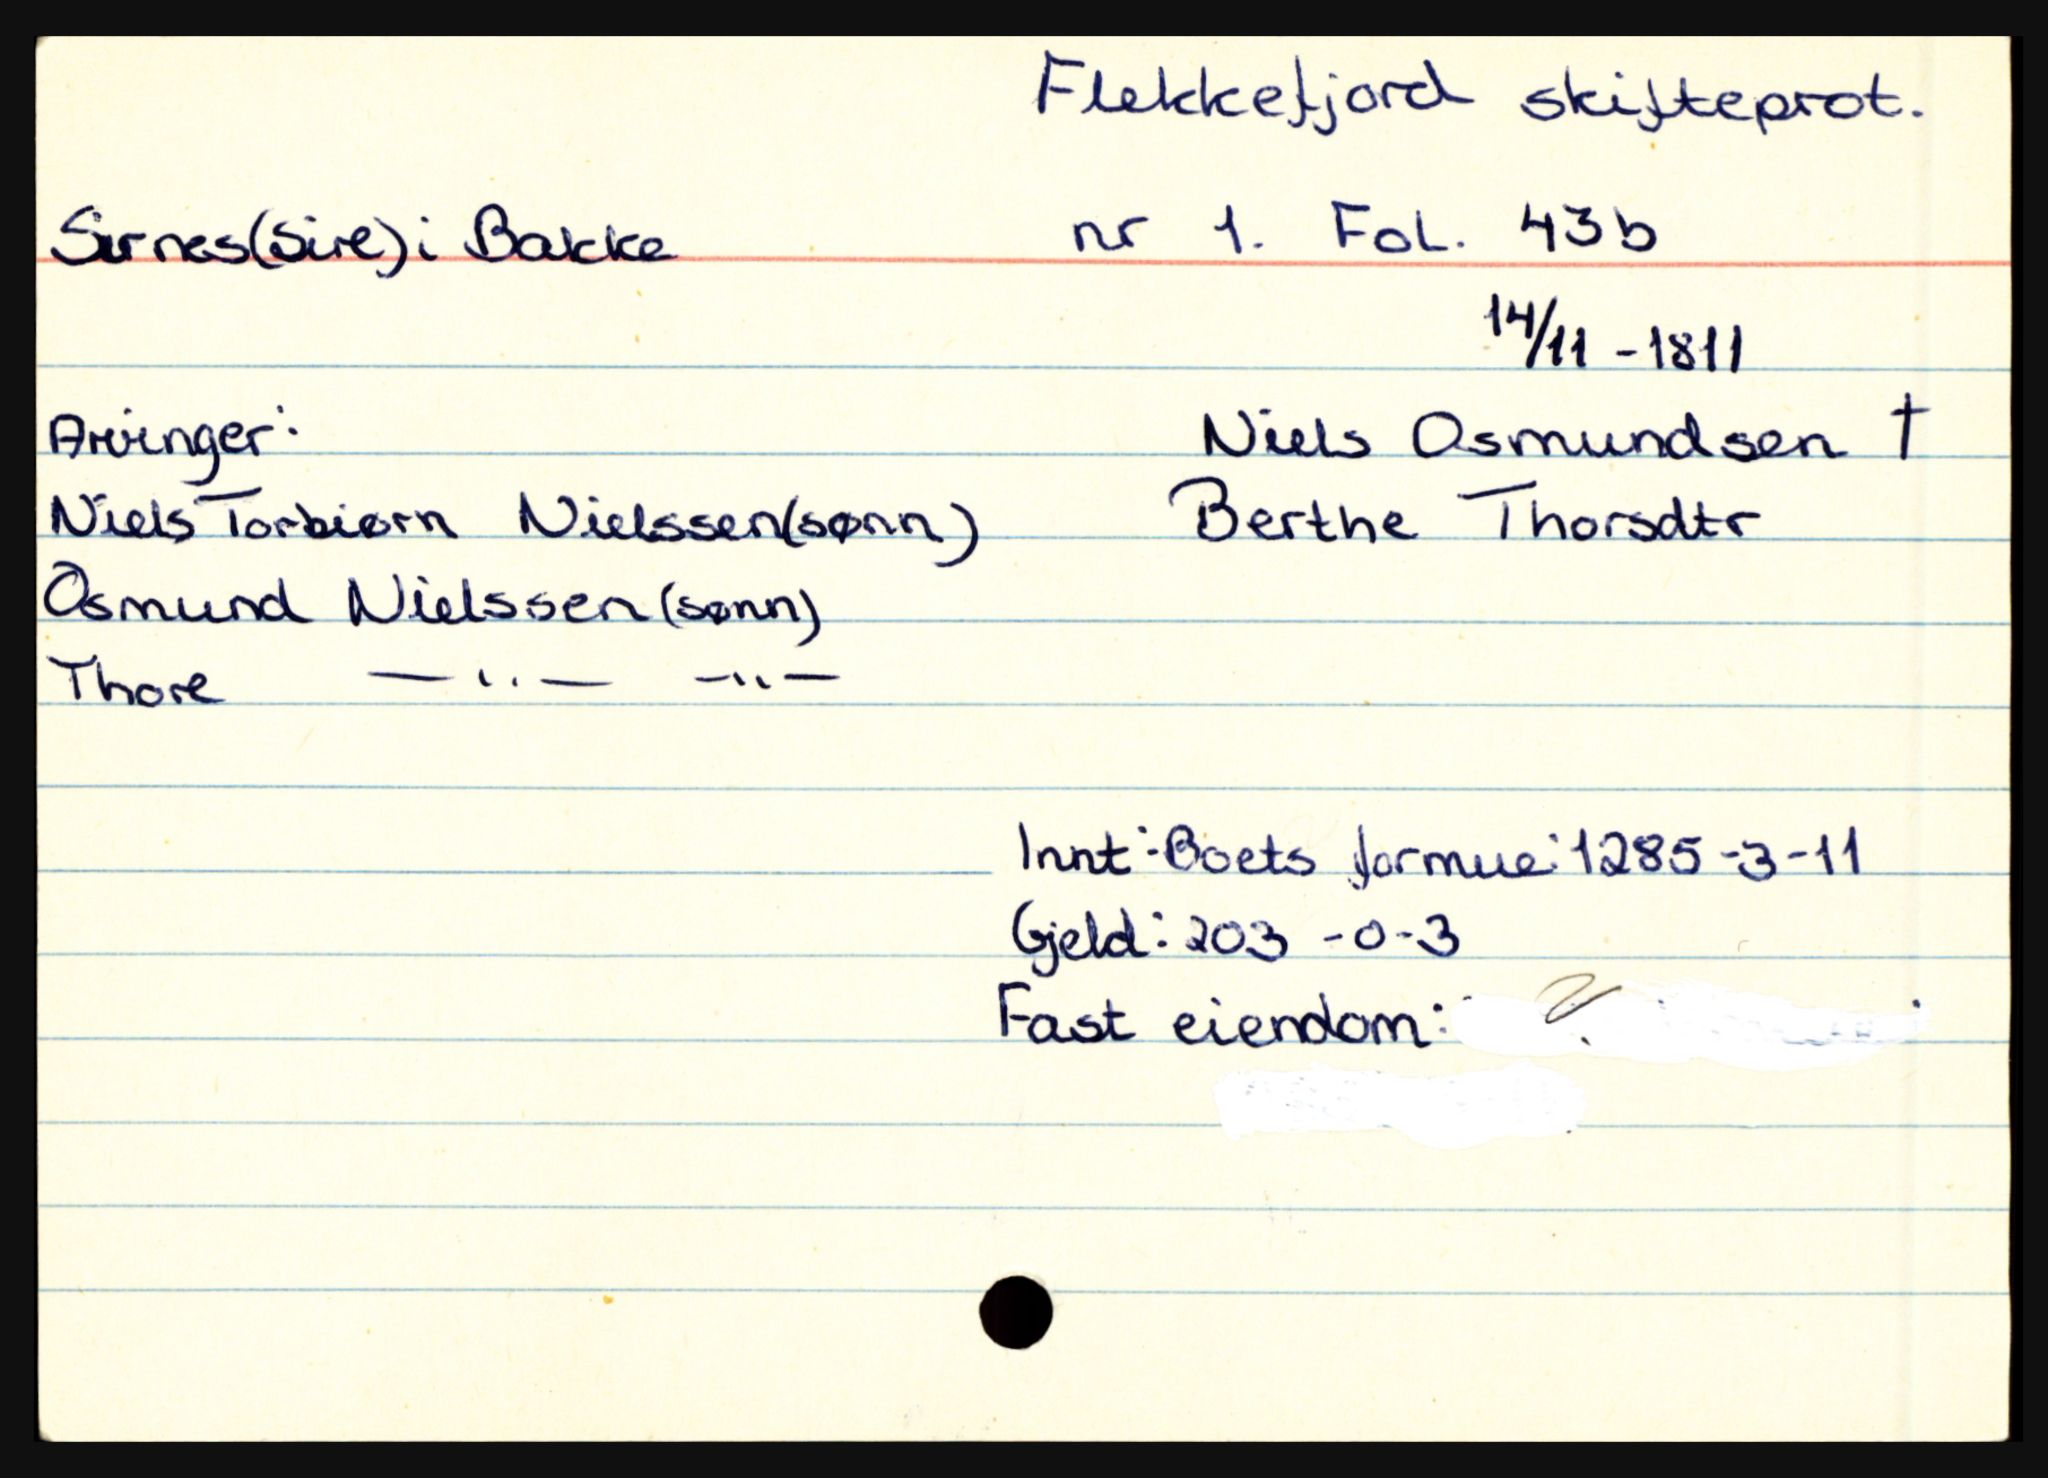 Flekkefjord skifteprot.
Sirnes(Sire) i Bakke nr 1. Fol. 43b
14/11 - 1811
Arvinger: Niels Osmundsen †
Niels Torbiørn Nielssen(sønn) Berthe Thorsdtr
Osmund Nielssen(sønn)
Thore —"— —"—
Innt: Boets formue: 1285-3-11
Gjeld: 203 -0-3
Fast eiendom: